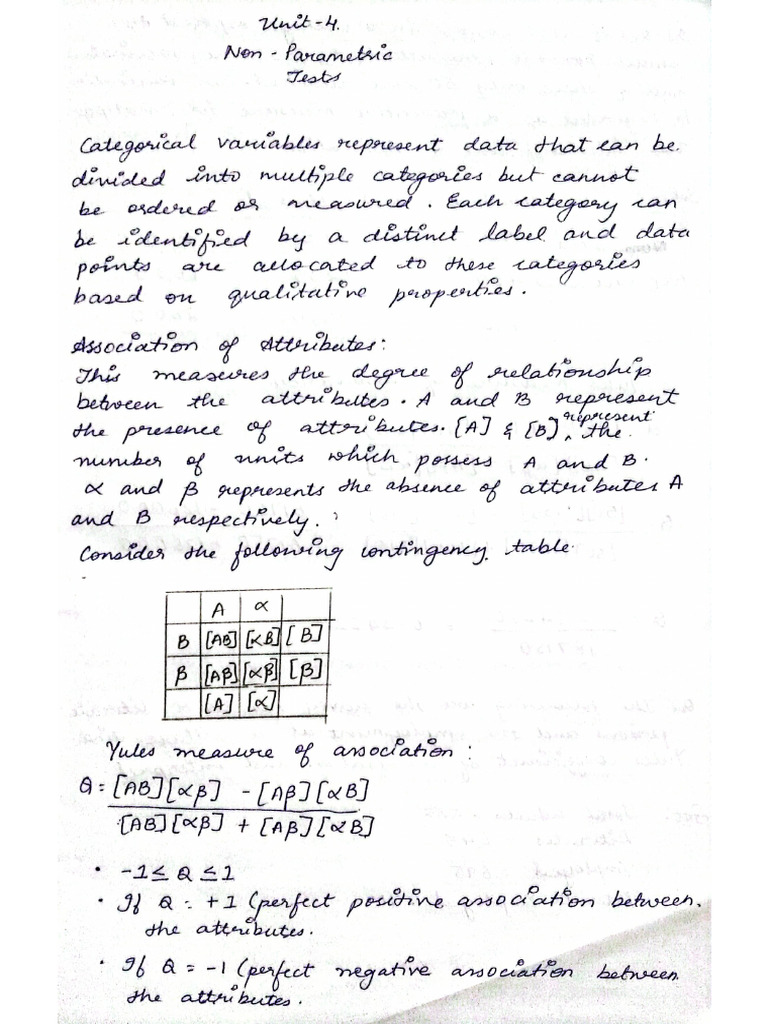 Unit-4.
Non-Parametric
Tests
Categorical variables represent data that can be
divided into multiple categories but cannot
be ordered or measured. Each category can
be identified by a distinct label and data
points are allocated to these categories
based on qualitative properties.
Association of Attributes:
This measures the degree of relationship
between the attributes. A and B represent
the presence of attributes. [A] & [B] represent the
number of units which possess A and B.
α and β represents the absence of attributes A
and B respectively.
Consider the following contingency table.
A α
B [AB] [αB] [B]
β [Aβ] [αβ] [β]
[A] [α]
Yules measure of association:
Q = [AB][αβ] - [Aβ][αB]
[AB][αβ] + [Aβ][αB]
• -1 ≤ Q ≤ 1
• If Q = +1 (perfect positive association between
the attributes.
• If Q = -1 (perfect negative association between
the attributes.